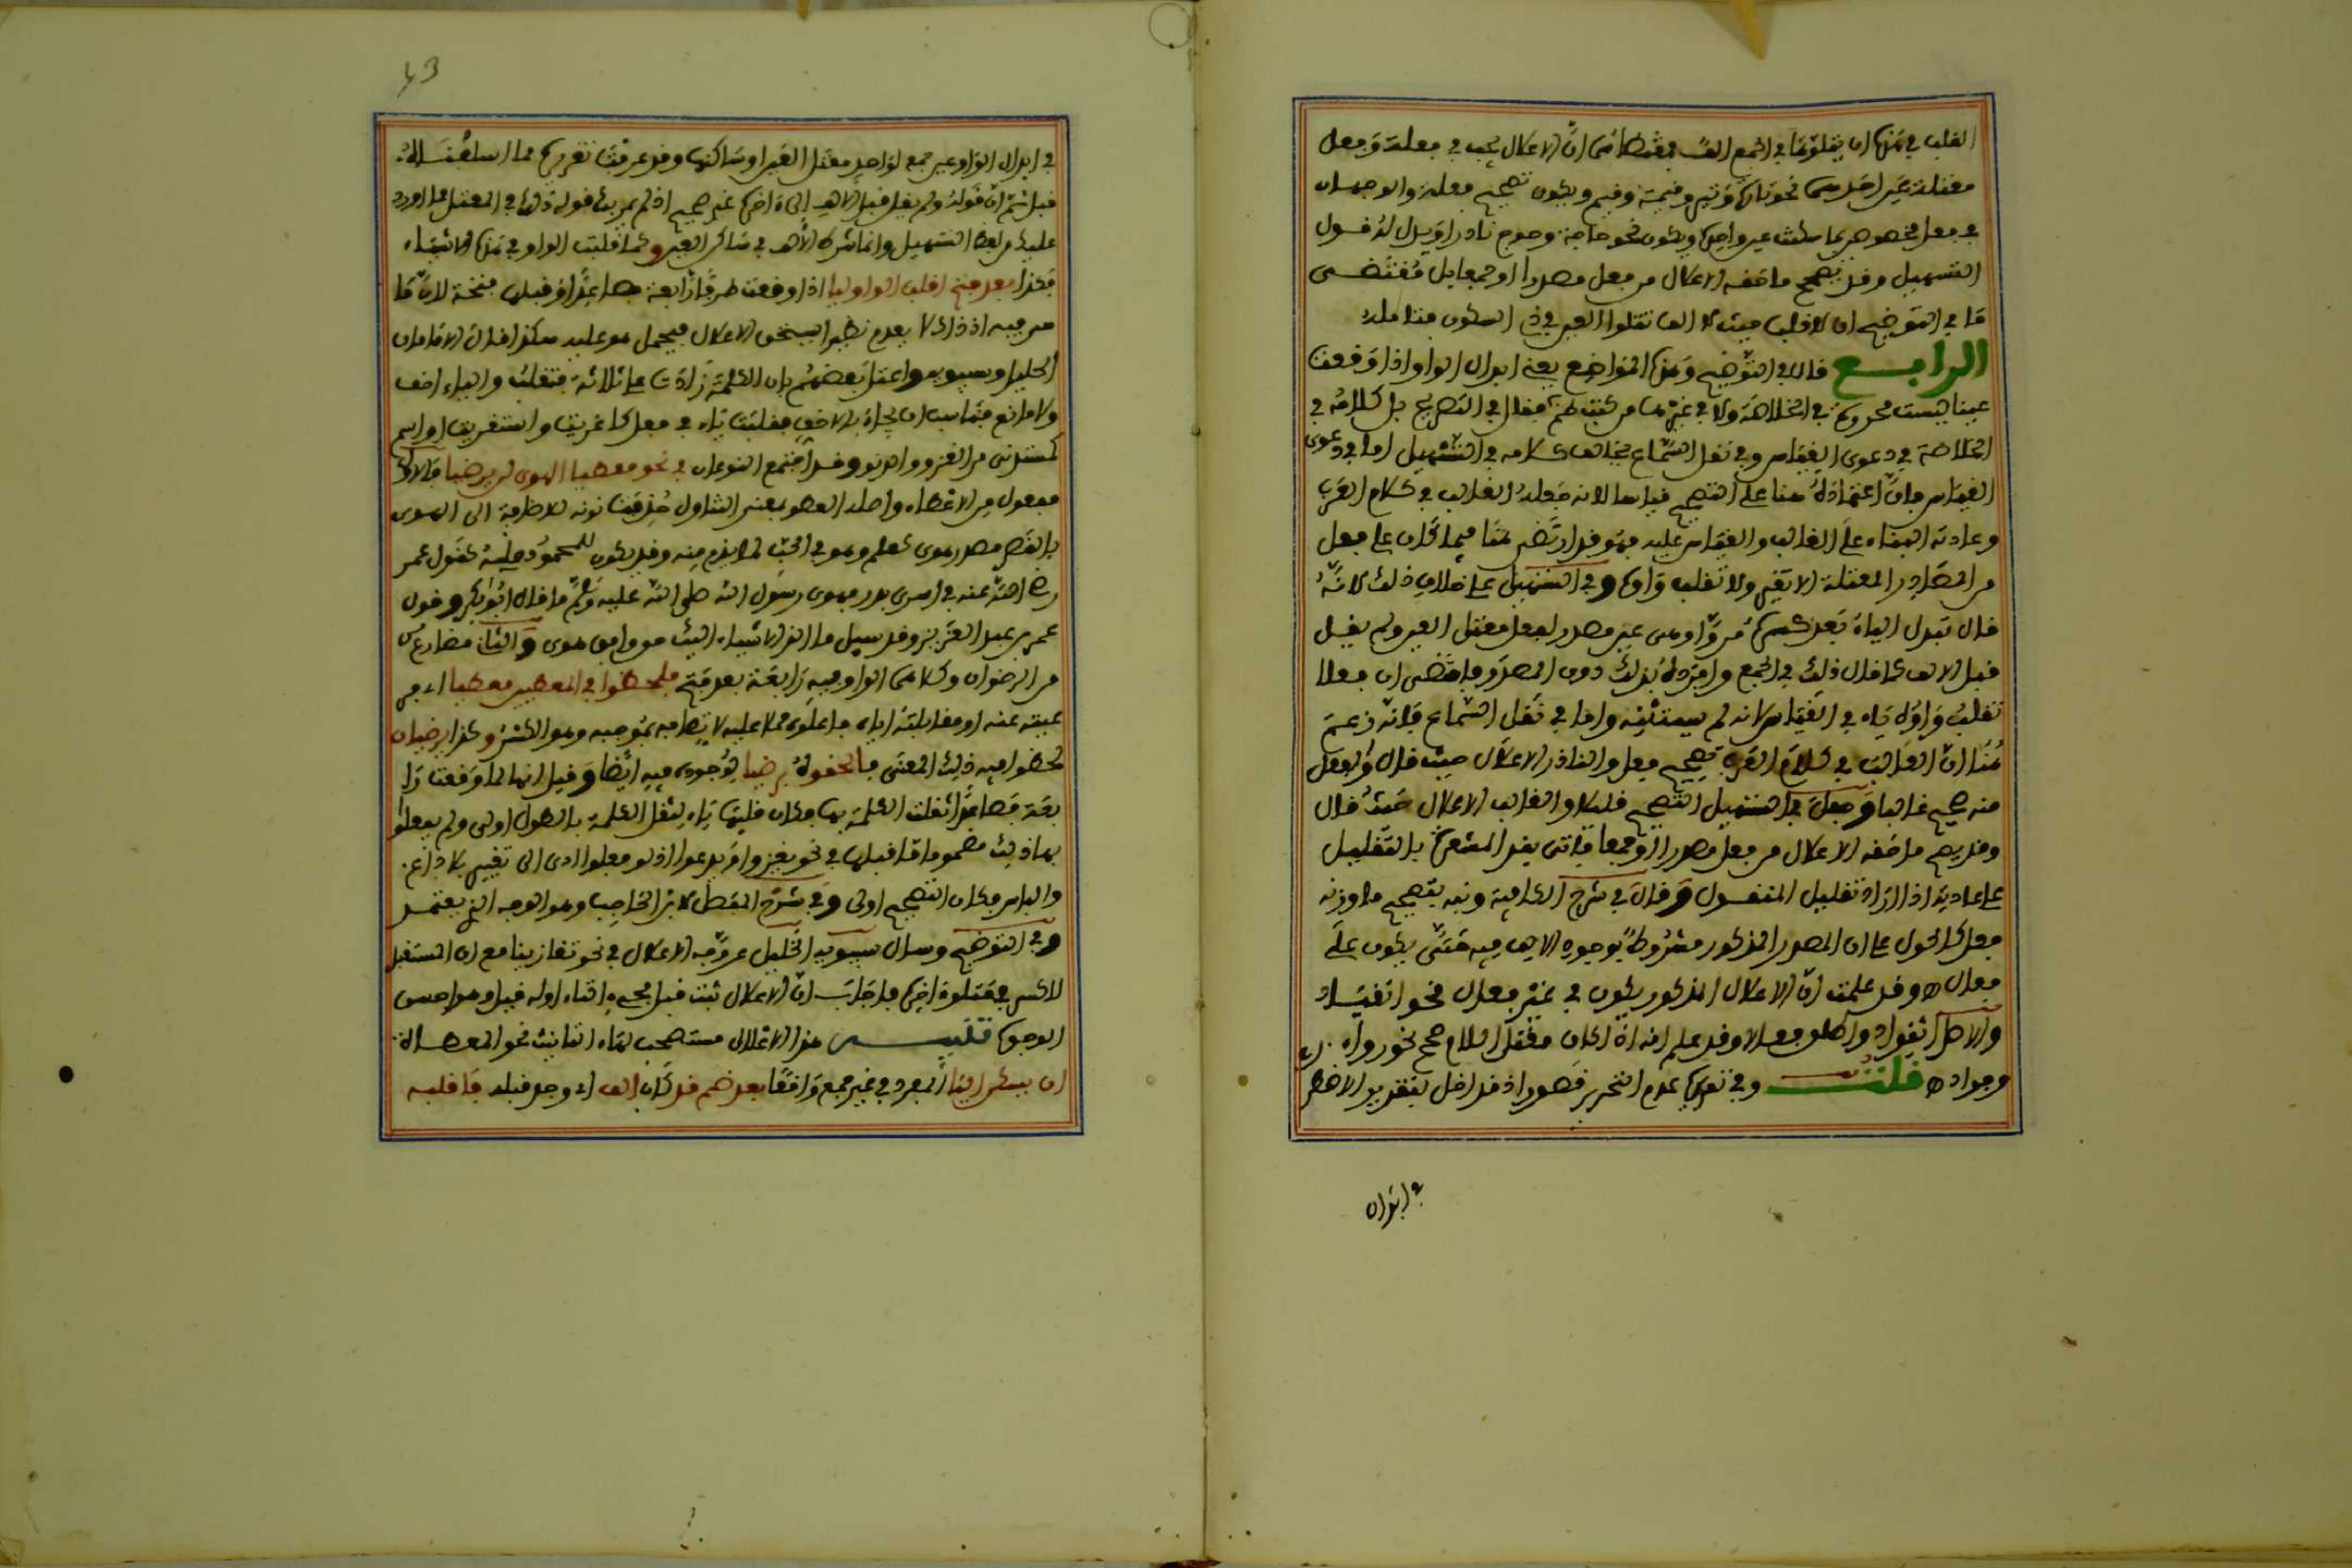 القلب في هذا ان يقلوها في الجمع الف فمقتضاه ان الاعلال يجب في فعلة وفعل
معتلة عين احدهما نحو تارة وتير وقيمة وقيم ويكون تصحيح فعلة والوجهان
في فعل مخصوص بما سكنت عين واحده ويكون نحو حاجة وحوج نادرا ويدل له قول
التسهيل وقد يصحح ما حقه الاعلال من فعل مصدرا او جمعا بل مقتضى
ما في التوضيح ان لا قلب حيث لا الف تقلوا العين في ذي السكون فتامله
الرابع قال في التوضيح وهذه المواضع يعني ابدال الواو اذا وقعت
عينا ليست محررة في الخلاصة ولا في غيرها من كتب الناظم فقال في التصريح بل كلامه في
الخلاصة في دعوى القياس وفي نقل السماع يخالف كلامه في التسهيل اما في دعوى
القياس فان اعتماده هنا على التصحيح قياسا لانه جعله الغالب في كلام العرب
وعادته البناء على الغالب والقياس عليه فهو قد ارتضى هنا فيما كان على فعل
من المصادر المعتلة الا تغير ولا تقلب واوه وفي التسهيل على خلاف ذلك لانه
قال تبدل الياء بعد كسرة من واو هي عين مصدر لفعل معتل العين ولم يقل
قبل الالف كما قال ذلك في الجمع وافرده بذلك دون المصدر فاقتضى ان فعلا
تقلب واوه ياء في القياس لانه لم يستثنه واما في نقل السماع فانه زعم
هنا ان الغالب في كلام العرب تصحيح فعل والنادر الاعلال حيث قال والفعل
منه صحيح غالبا وجعل في التسهيل التصحيح قليلا والغالب الاعلال حيث قال
وقد يصحح ما حقه الاعلال من فعل مصدرا او جمعا فاتى بقد المشعرة بالتقليل
على عادته اذا اراد تقليل المنقول وقال في شرح الكافية ونبه بتصحيح ما وزنه
فعل كالحول على ان المصدر المذكور مشروط بوجود الالف فيه حتى يكون على
فعال اه وقد علمت ان الاعلال المذكور يكون في غير فعال نحو انقياد
والاصل انقواد واطلق فعلا وقد علم انه اذا كان معتل اللام صحح نحو رواء
وجواد اه قلت وفي تعريف عدم التحرير قصور اذ قد اخل بتقدير الاخص
في ابدال
43
في ابدال الواو عين جمع لواحد معتل العين او ساكنها وقد عرفت تقريره مما اسلفنا له
قبل ثم ان قوله ولم يقل قبل الالف الى اخره غير صحيح اذ لم يريد قوله ذلك في المعتل لما اورد
عليه من لفظ التسهيل وانما شرط الالف في ساكن العين وكما قلبت الواو في هذه الاشياء
فكذا بعد فتح اقلب الواو يا اذا وقعت طرفا رابعة فصاعدا وقبلها فتحة لان ما
هي فيه اذ ذاك لا يعدم نظيرا يستحق الاعلال فيحمل هو عليه هكذا قال الامامان
الخليل وسيبويه واعتل بعضهم بان الكلمة زادت على ثلاثة فثقلت والياء اخف
ولا مانع فناسب ان يجاء بالاخف فقلبت ياء في فعل كاغزيت واستغزيت او اسم
كمستدني من الغزو والدنو وقد اجتمع النوعان في نحو معطيا الهوى لن يرضيا فالاول
مفعول من الاعطاء واصله العطو بمعنى التناول حذفت نونه للاضافة الى الهوى
بالقصر مصدر هوى كعلم وهو في الحب لما يذم منه وقد يكون للمحمود حملية كقول عمر
رضي الله عنه في اسرى بدر فهوى رسول الله صلى الله عليه وسلم ما قال ابو بكر وقول
عمر بن عبد العزيز وقد سيل ما الذ الاشياء اليك هو وافق هوى والثاني مضارع رضي
من الرضوان وكلاهما الواو فيه رابعة بعد فتح فلحظوا في المعطين معطيا اي من
عينه عنه او مقابلته اياه فاعلوه حملا عليه لاتصافه بموجبه وهو الكسر وكذا يرضيان
لحظوا فيه ذلك المعنى فالحقوه يرضيا لوجوده فيه ايضا وقيل انما لما وقعت را
بعة فصاعدا ثقلت الكلمة بها وكان قلبها ياء لثقل الكلمة بالطول اولى ولم يفعلوا
بها ذلك مضموما ما قبلها في نحو يغزوا ويدعوا اذ لو فعلوا ادى الى تغيير بلا داع
والباس وكان التصحيح اولى وفي شرح المفصل لابن الحاجب وهو الوجه الذي يعتمد
وفي التوضيح وسال سيبويه الخليل عن وجه الاعلال في نحو تغازينا مع ان المستقبل
لاكسر في متلو اخره فاجاب ان الاعلال ثبت قبل مجيء التاء اوله قبل وهو احسن
الوجوه تنبيه هذا الاعلال مستصحب لتاء التانيث نحو المعطاة
ان يسكن اليا المفرد في غير جمع واقعا بعد ضم قد كان الف اي وجد قبله فاقلبه